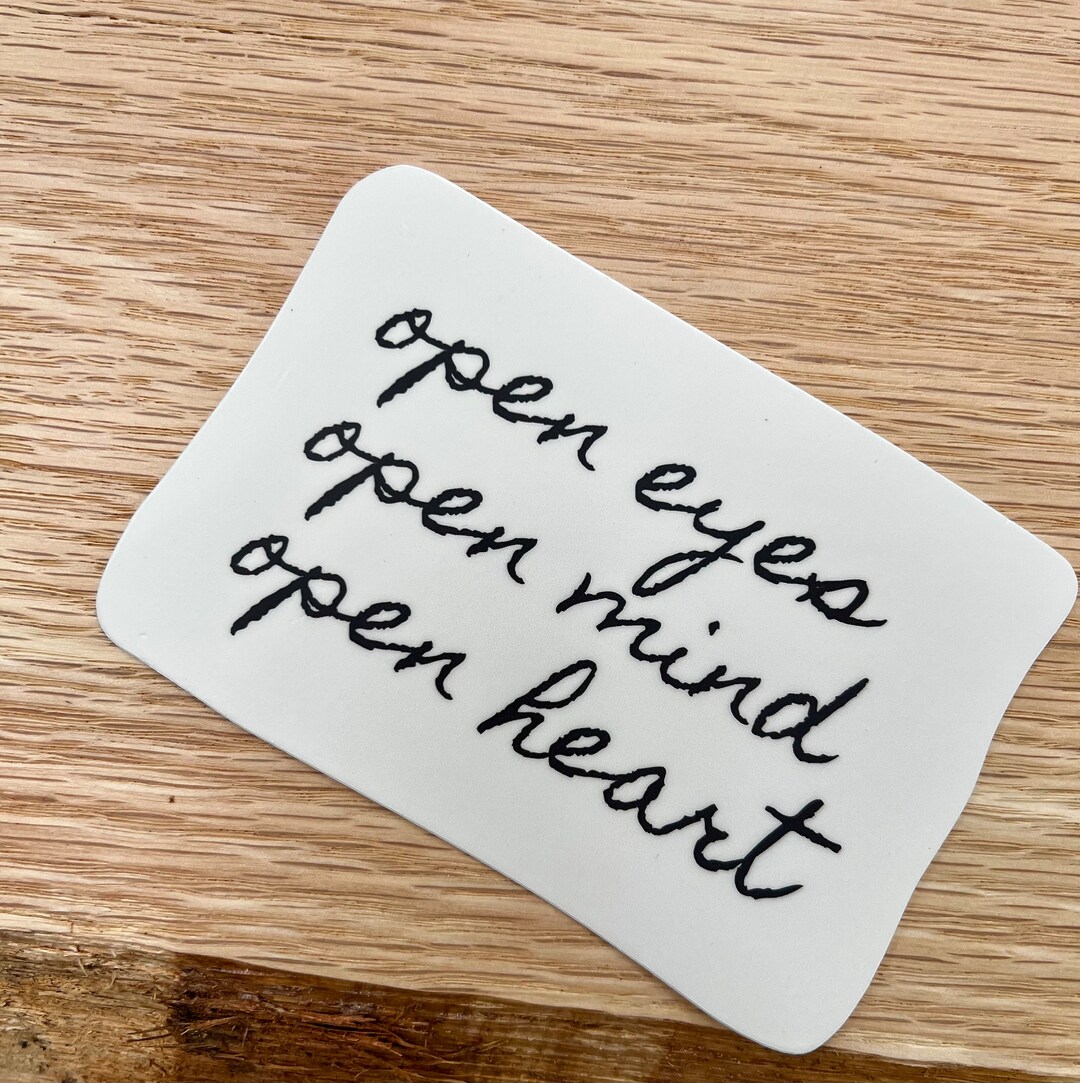 open eyes
open mind
open heart